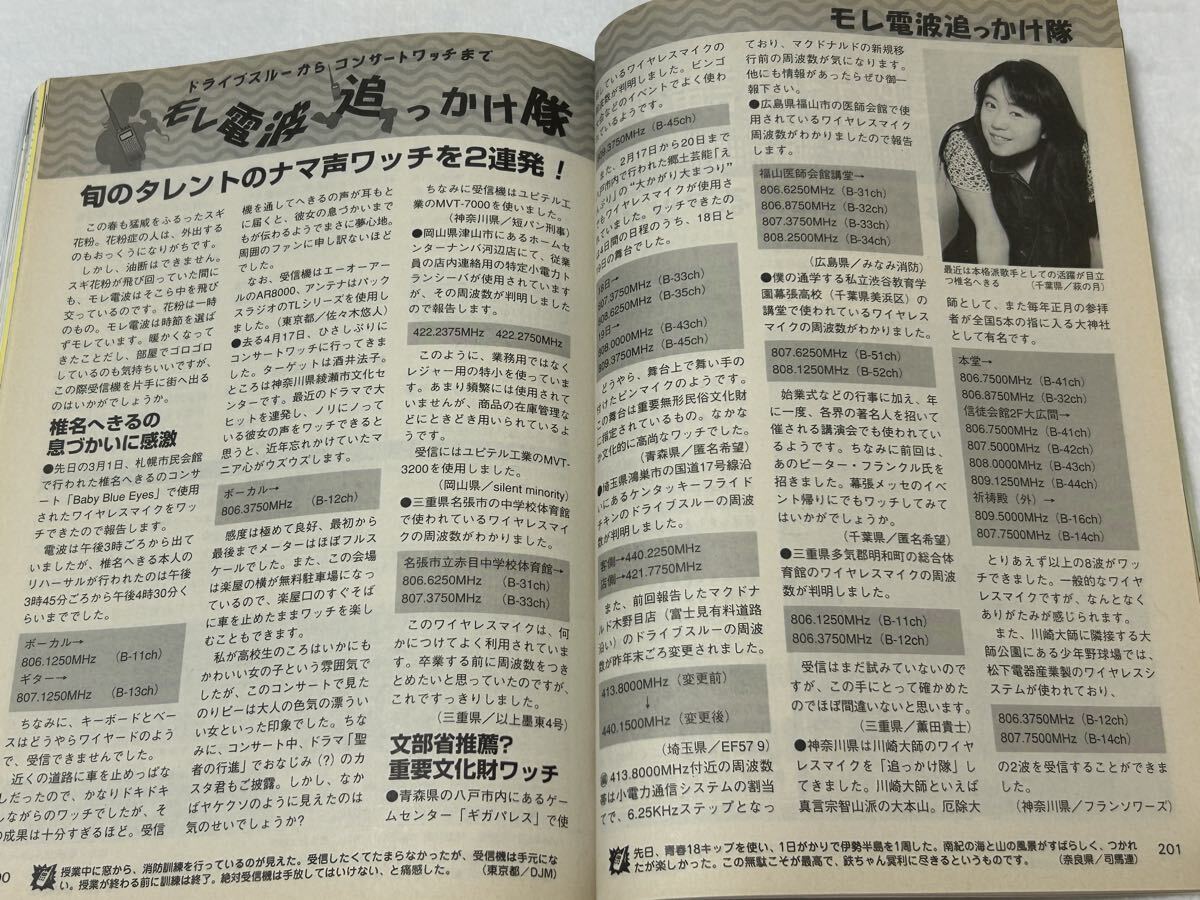 ドライブスルーから コンサートワッチまで
モレ電波追っかけ隊
旬のタレントのナマ声ワッチを2連発!
この春も猛威をふるったスギ
花粉。花粉症の人は、外出する
のもおっくうになりがちです。
しかし、油断はできません。
スギ花粉が飛び回っていた間に
も、モレ電波はそこら中を飛び
交っているのです。花粉は一時
のもの。モレ電波は時節を選ば
ずモレています。暖かくなって
きたことだし、部屋でゴロゴロ
しているのも気持ちいいですが、
この際受信機を片手に街へ出る
のはいかがでしょうか。
椎名へきるの
息づかいに感激
●先日の3月1日、札幌市民会館
で行われた椎名へきるのコンサ
ート「Baby Blue Eyes」で使用
されたワイヤレスマイクをワッ
チできたので報告します。
電波は午後3時ごろから出て
いましたが、椎名へきる本人の
リハーサルが行われたのは午後
3時45分ごろから午後4時30分く
らいまででした。
ボーカル→
806.1250MHz (B-11ch)
ギター→
807.1250MHz (B-13ch)
ちなみに、キーボードとベー
スはどうやらワイヤードのよう
で、受信できませんでした。
近くの道路に車を止めっぱな
しだったので、かなりドキドキ
しながらのワッチでしたが、そ
の成果は十分すぎるほど。受信
機を通してへきるの声が耳もと
に届くと、彼女の息づかいまで
もが伝わるようでまさに夢心地。
周囲のファンに申し訳ないほど
でした。
なお、受信機はエーオーアー
ルのAR8000、アンテナはバック
スラジオのTLシリーズを使用し
ました。(東京都/佐々木悠人)
●去る4月17日、ひさしぶりに
コンサートワッチに行ってきま
した。ターゲットは酒井法子。
ところは神奈川県綾瀬市文化セ
ンターです。最近のドラマで大
ヒットを連発し、ノリにノって
いる彼女の声をワッチできると
思うと、近年忘れかけていたマ
ニア心がウズウズします。
ボーカル→
806.3750MHz (B-12ch)
感度は極めて良好、最初から
最後までメーターはほぼフルス
ケールでした。また、この会場
は楽屋の横が無料駐車場になっ
ているので、楽屋口のすぐそば
に車を止めたままワッチを楽し
むこともできます。
私が高校生のころはいかにも
かわいい女の子という雰囲気で
したが、このコンサートで見た
のりピーは大人の色気の漂うい
い女といった印象でした。ちな
みに、コンサート中、ドラマ「聖
者の行進」でおなじみ(?)のカ
スタ君もご披露。しかし、なか
ばヤケクソのように見えたのは
気のせいでしょうか?
ちなみに受信機はユピテル工
業のMVT-7000を使いました。
(神奈川県/短パン刑事)
●岡山県津山市にあるホームセ
ンターナンバ河辺店にて、従業
員の店内連絡用の特定小電力ト
ランシーバが使用されています
が、その周波数が判明しました
ので報告します。
422.2375MHz 422.2750MHz
このように、業務用ではなく
レジャー用の特小を使っていま
す。あまり頻繁には使用されて
いませんが、商品の在庫管理な
どにときどき用いられているよ
うです。
受信にはユピテル工業のMVT-
3200を使用しました。
(岡山県/silent minority)
●三重県名張市の中学校体育館
で使われているワイヤレスマイ
クの周波数がわかりました。
名張市立赤目中学校体育館→
806.6250MHz (B-31ch)
807.3750MHz (B-33ch)
このワイヤレスマイクは、何
かにつけてよく利用されていま
す。卒業する前に周波数をつき
とめたいと思っていたのですが、
これですっきりしました。
(三重県/以上墨東4号)
文部省推薦?
重要文化財ワッチ
●青森県の八戸市内にあるゲー
ムセンター「ギガパレス」で使
授業中に窓から、消防訓練を行っているのが見えた。受信したくてたまらなかったが、受信機は手元にな
い。授業が終わる前に訓練は終了。絶対受信機は手放してはいけない、と痛感した。 (東京都/DJM)
モレ電波追っかけ隊
しているワイヤレスマイクの
波数が判明しました。ビンゴ
会などのイベントでよく使わ
れているようです。
809.3750MHz (B-45ch)
また、2月17日から20日まで
八戸市内で行われた郷土芸能「え
んぶり」の"大かがり大まつり"
でもワイヤレスマイクが使用さ
れていました。ワッチできたの
は4日間の日程のうち、18日と
19日の舞台でした。
18日→
807.3750MHz (B-33ch)
808.6250MHz (B-35ch)
19日→
808.0000MHz (B-43ch)
809.3750MHz (B-45ch)
どうやら、舞台上で舞い手の
付けたピンマイクのようです。
この舞台は重要無形民俗文化財
に指定されているもの。なかな
か文化的に高尚なワッチでした。
(青森県/匿名希望)
●埼玉県鴻巣市の国道17号線沿
いにあるケンタッキーフライド
チキンのドライブスルーの周波
数が判明しました。
客側→440.2250MHz
店側→421.7750MHz
また、前回報告したマクドナ
ルド木野目店(富士見有料道路
沿い)のドライブスルーの周波
数が昨年末ごろ変更されました。
413.8000MHz (変更前)
↓
440.1500MHz (変更後)
(埼玉県/EF57 9)
413.8000MHz付近の周波数
帯は小電力通信システムの割当
てで、6.25KHzステップとなっ
ており、マクドナルドの新規移
行前の周波数が気になります。
他にも情報があったらぜひ御一
報下さい。
●広島県福山市の医師会館で使
用されているワイヤレスマイク
周波数がわかりましたので報告
します。
福山医師会館講堂→
806.6250MHz (B-31ch)
806.8750MHz (B-32ch)
807.3750MHz (B-33ch)
808.2500MHz (B-34ch)
(広島県/みなみ消防)
●僕の通学する私立渋谷教育学
園幕張高校(千葉県美浜区)の
講堂で使われているワイヤレス
マイクの周波数がわかりました。
807.6250MHz (B-51ch)
808.1250MHz (B-52ch)
始業式などの行事に加え、年
に一度、各界の著名人を招いて
催される講演会でも使われてい
るようです。ちなみに前回は、
あのピーター・フランクル氏を
招きました。幕張メッセのイベ
ント帰りにでもワッチしてみて
はいかがでしょうか。
(千葉県/匿名希望)
●三重県多気郡明和町の総合体
育館のワイヤレスマイクの周波
数が判明しました。
806.1250MHz (B-11ch)
806.3750MHz (B-12ch)
受信はまだ試みていないので
すが、この手にとって確かめた
のでほぼ間違いないと思います。
(三重県/薫田貴士)
●神奈川県は川崎大師のワイヤ
レスマイクを「追っかけ隊」し
てきました。川崎大師といえば
真言宗智山派の大本山。厄除大
最近は本格派歌手としての活躍が目立
つ椎名へきる (千葉県/萩の月)
師として、また毎年正月の参拝
者が全国5本の指に入る大神社
として有名です。
本堂→
806.7500MHz (B-41ch)
806.8750MHz (B-32ch)
信徒会館2F大広間→
806.7500MHz (B-41ch)
807.5000MHz (B-42ch)
808.0000MHz (B-43ch)
809.1250MHz (B-44ch)
祈祷殿(外)→
809.5000MHz (B-16ch)
807.7500MHz (B-14ch)
とりあえず以上の8波がワッ
チできました。一般的なワイヤ
レスマイクですが、なんとなく
ありがたみが感じられます。
また、川崎大師に隣接する大
師公園にある少年野球場では、
松下電器産業製のワイヤレスシ
ステムが使われており、
806.3750MHz (B-12ch)
807.7500MHz (B-14ch)
の2波を受信することができま
した。
(神奈川県/フランソワーズ)
先日、青春18キップを使い、1日がかりで伊勢半島を1周した。南紀の海と山の風景がすばらしく、つかれ
たが楽しかった。この無駄こそが最高で、鉄ちゃん冥利に尽きるというものです。 (奈良県/司馬遷)
201